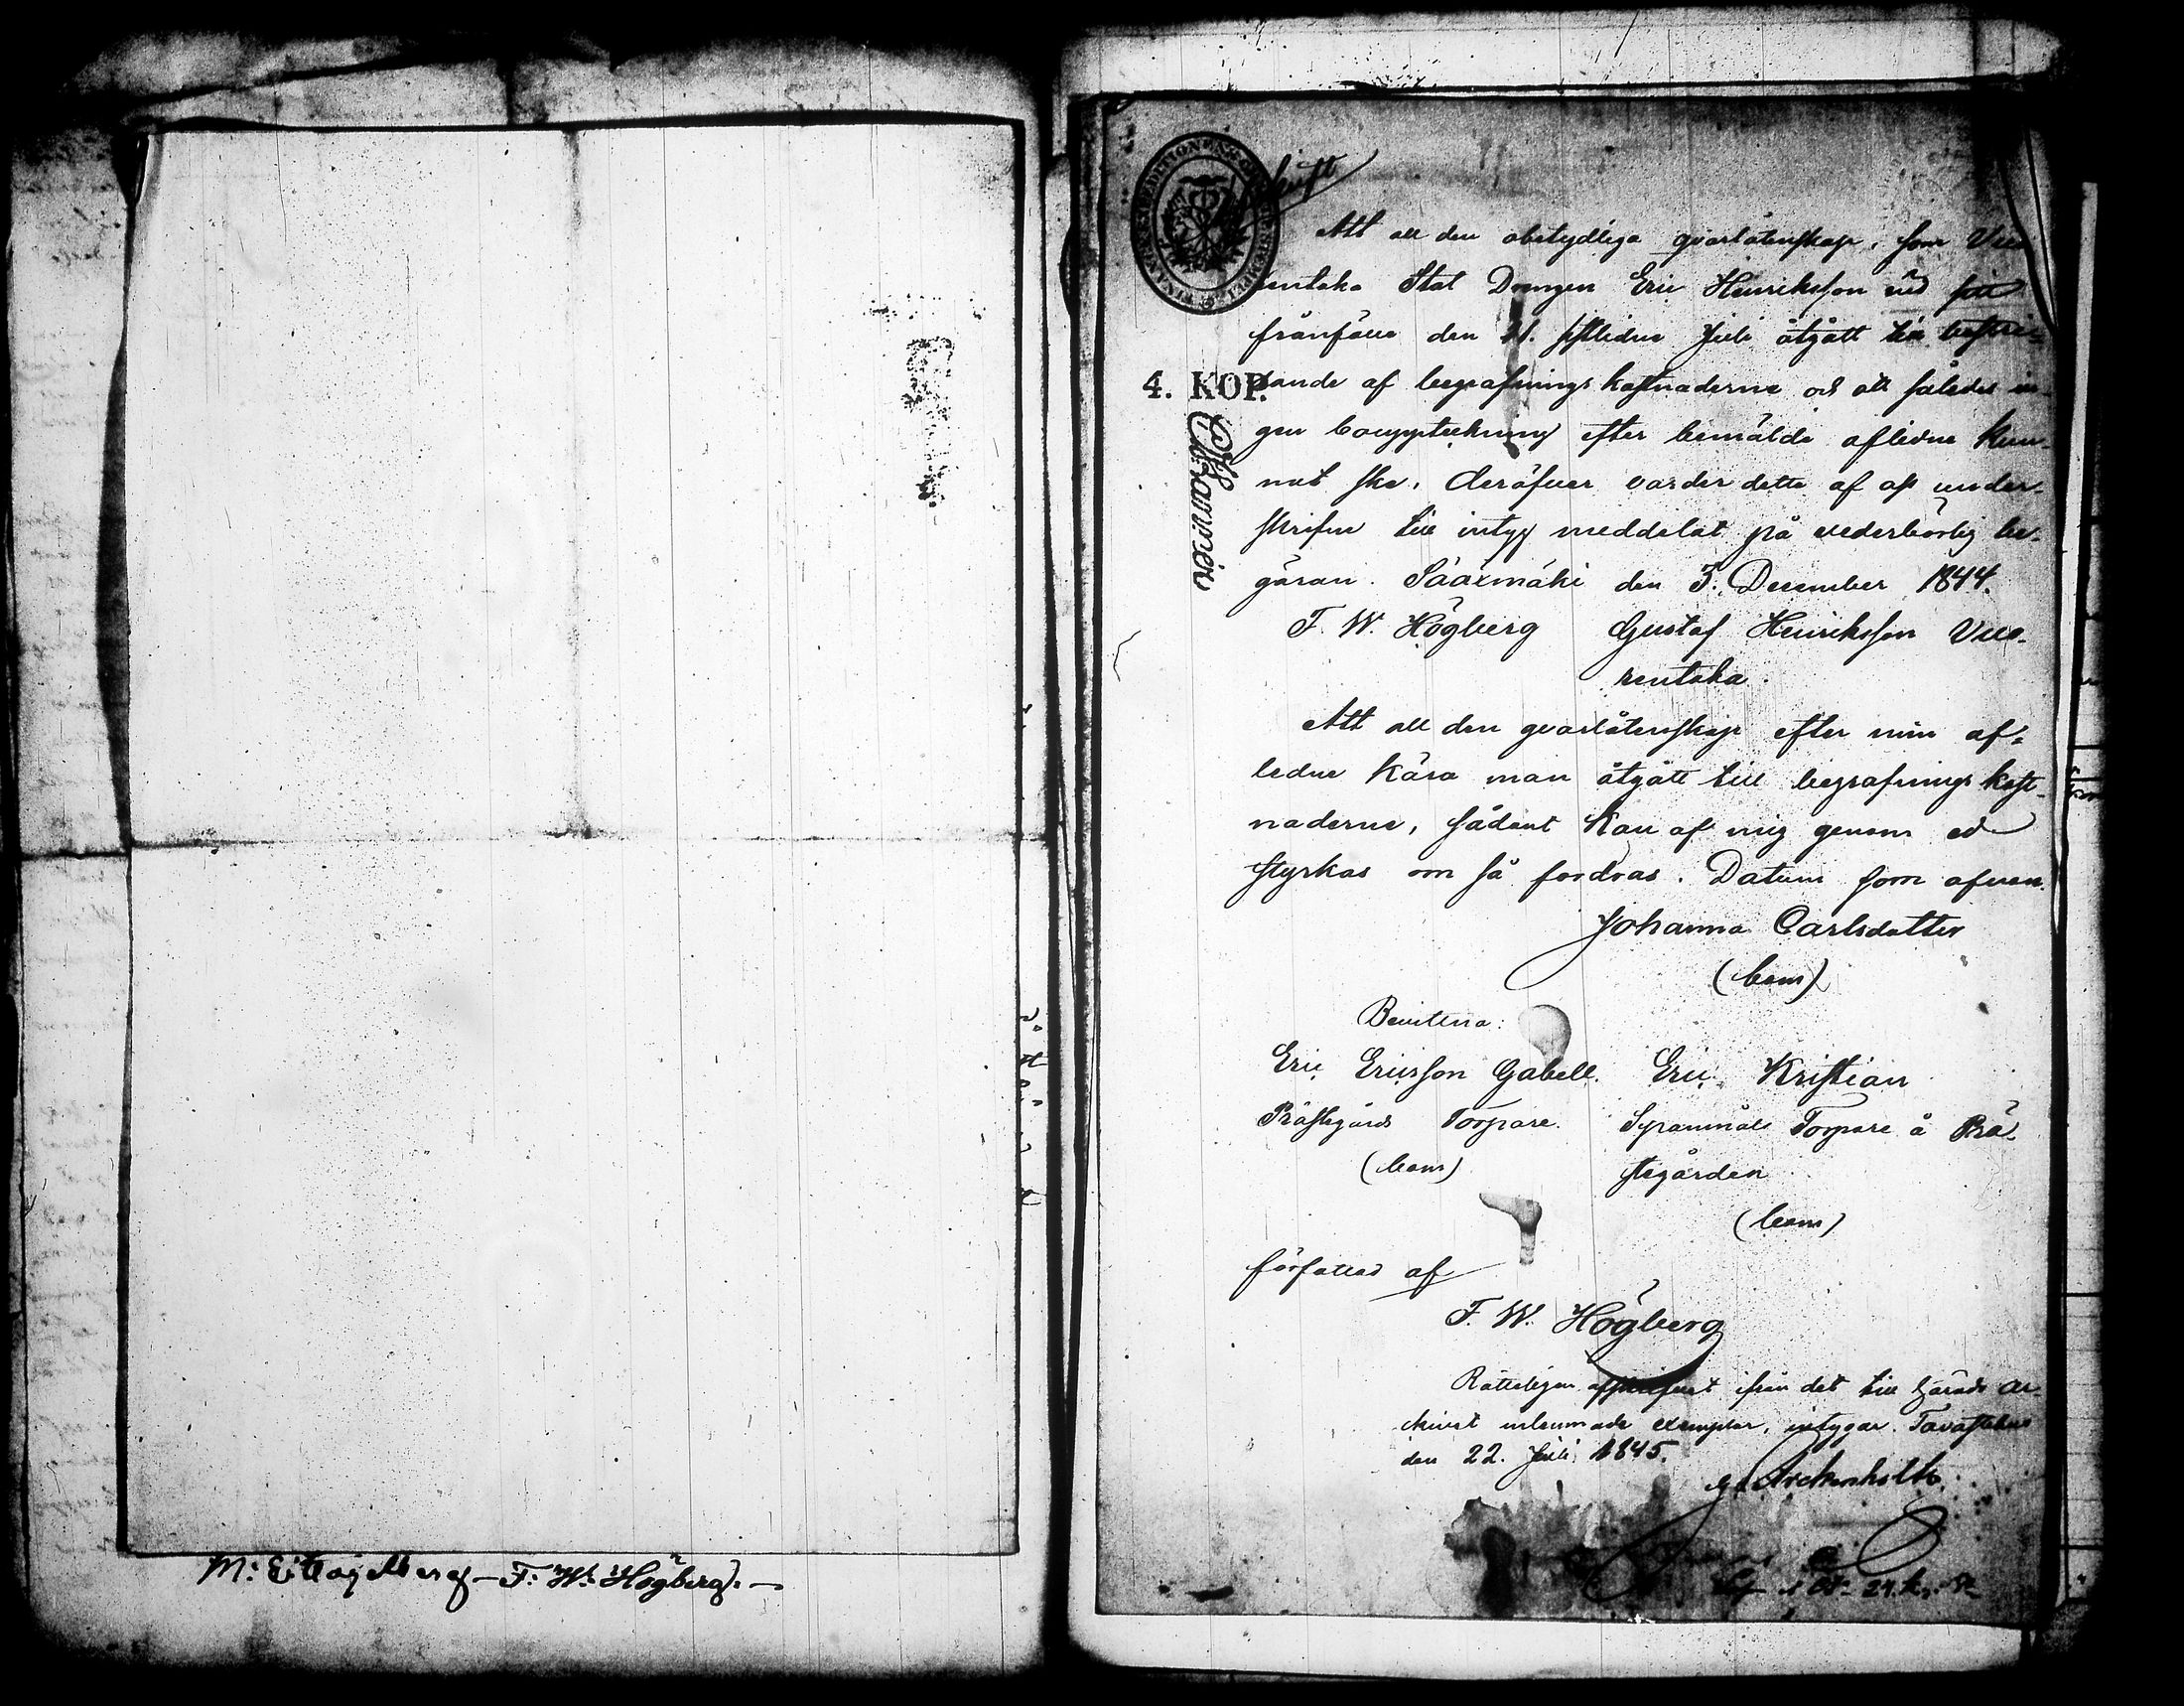 M: E: Vagelberg – F: W: Högberg. –
Afskrift
Att all den obetydliga qvarlåtenskap, som Vuo-
rentaka Stat Drengen Eric Henriksson vid sitt
frånfälle den 21. sistlidne Juli åtgått till bestri-
4. KOP.
dande af begrafnings kostnaderne och att således in-
gen bouppteckning efter bemälde aflidne kun-
nat ske, deröfver varder detta af oss under-
skrifne till intyg meddelat på vederbörlig be-
gäran. Sääxmäki den 3. December 1844.
F. W. Högberg Gustaf Henriksson Vuo-
rentaka.
Att all den qvarlåtenskap efter min af-
ledne kära man åtgått till begrafnings kost-
naderne, sådant kan af mig genom ed
styrkas om så fordras. Datum som ofvan.
Johanna Carlsdotter
(bom)
Bevittna:
Eric Ericsson Gabell. Eric Kristian
Prästegårds Torpare. Spannmåls Torpare å Prä-
(bom) stegården
(bom)
författad af
F. W. Högberg
Rätteligen afskrifvet ifrån det till Härads Ar-
chivet inlemnade exemplar, intygar. Tavastehus
den 22. Juli 1845.
Arckenholtz.